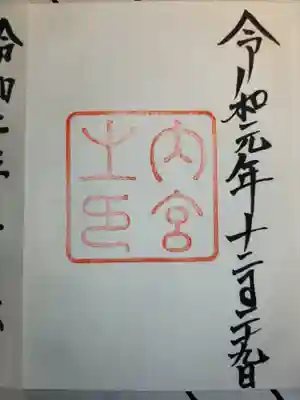 令和元年十二月二十九日
内宮
之印
令和二